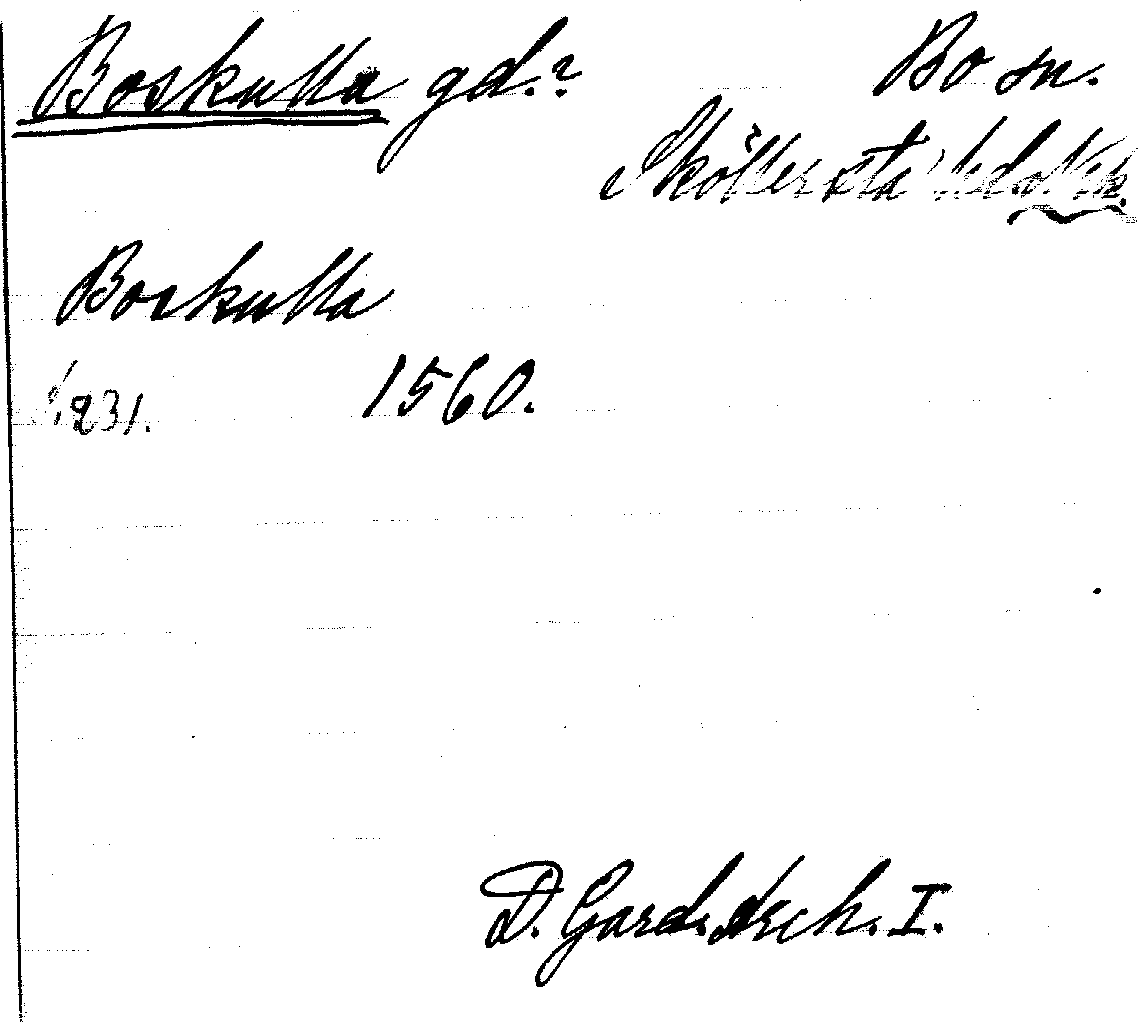 Boskulla gd.? Bo sn.
Sköllersta hd. Nke.
Boskulla
1/231. 1560.
D. Gard. Arch. I.